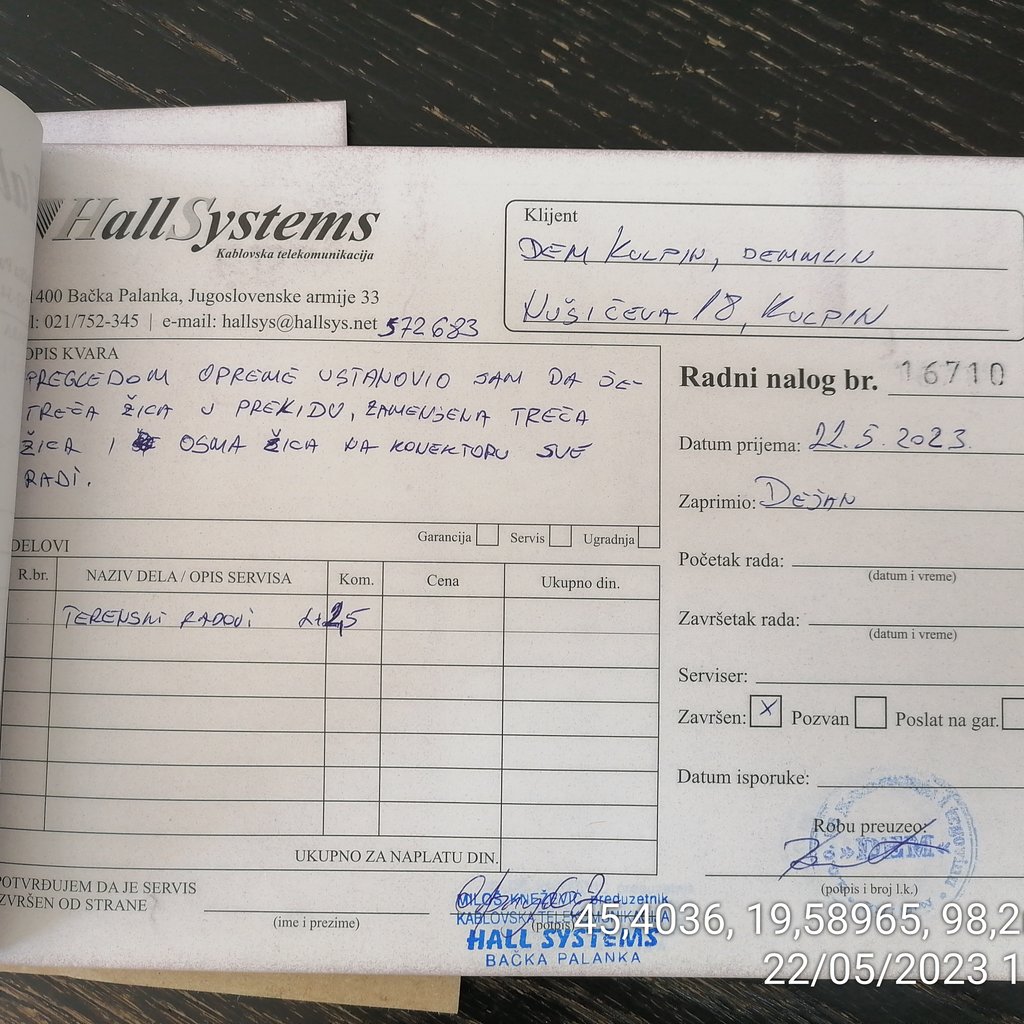 HallSystems
Kablovska telekomunikacija
1400 Bačka Palanka, Jugoslovenske armije 33
l: 021/752-345 | e-mail: hallsys@hallsys.net 572683
Klijent
DEM KULPIN, DEMMLIN
NUŠIĆEVA 18, KULPIN
OPIS KVARA
PREGLEDOM OPREME USTANOVIO SAM DA JE-
TREĆA ŽICA U PREKIDU, ZAMENJENA TREĆA
ŽICA I OSMA ŽICA NA KONEKTORU SVE
RADI.
Radni nalog br. 16710
Datum prijema: 22.5.2023.
Zaprimio: DEJAN
Početak rada:
(datum i vreme)
Završetak rada:
(datum i vreme)
Serviser:
Završen: X Pozvan Poslat na gar.
Datum isporuke:
Robu preuzeo:
»DEM«
(potpis i broj l.k.)
Garancija Servis Ugradnja
DELOVI
R.br. NAZIV DELA / OPIS SERVISA Kom. Cena Ukupno din.
TERENSKI RADOVI
UKUPNO ZA NAPLATU DIN.
POTVRĐUJEM DA JE SERVIS
IZVRŠEN OD STRANE
(ime i prezime)
(potpis)
MILOŠ KNEŽEVIĆ preduzetnik
KABLOVSKA TELEKOMUNIKACIJA
HALL SYSTEMS
BAČKA PALANKA
45,4036, 19,58965, 98,2
22/05/2023 1